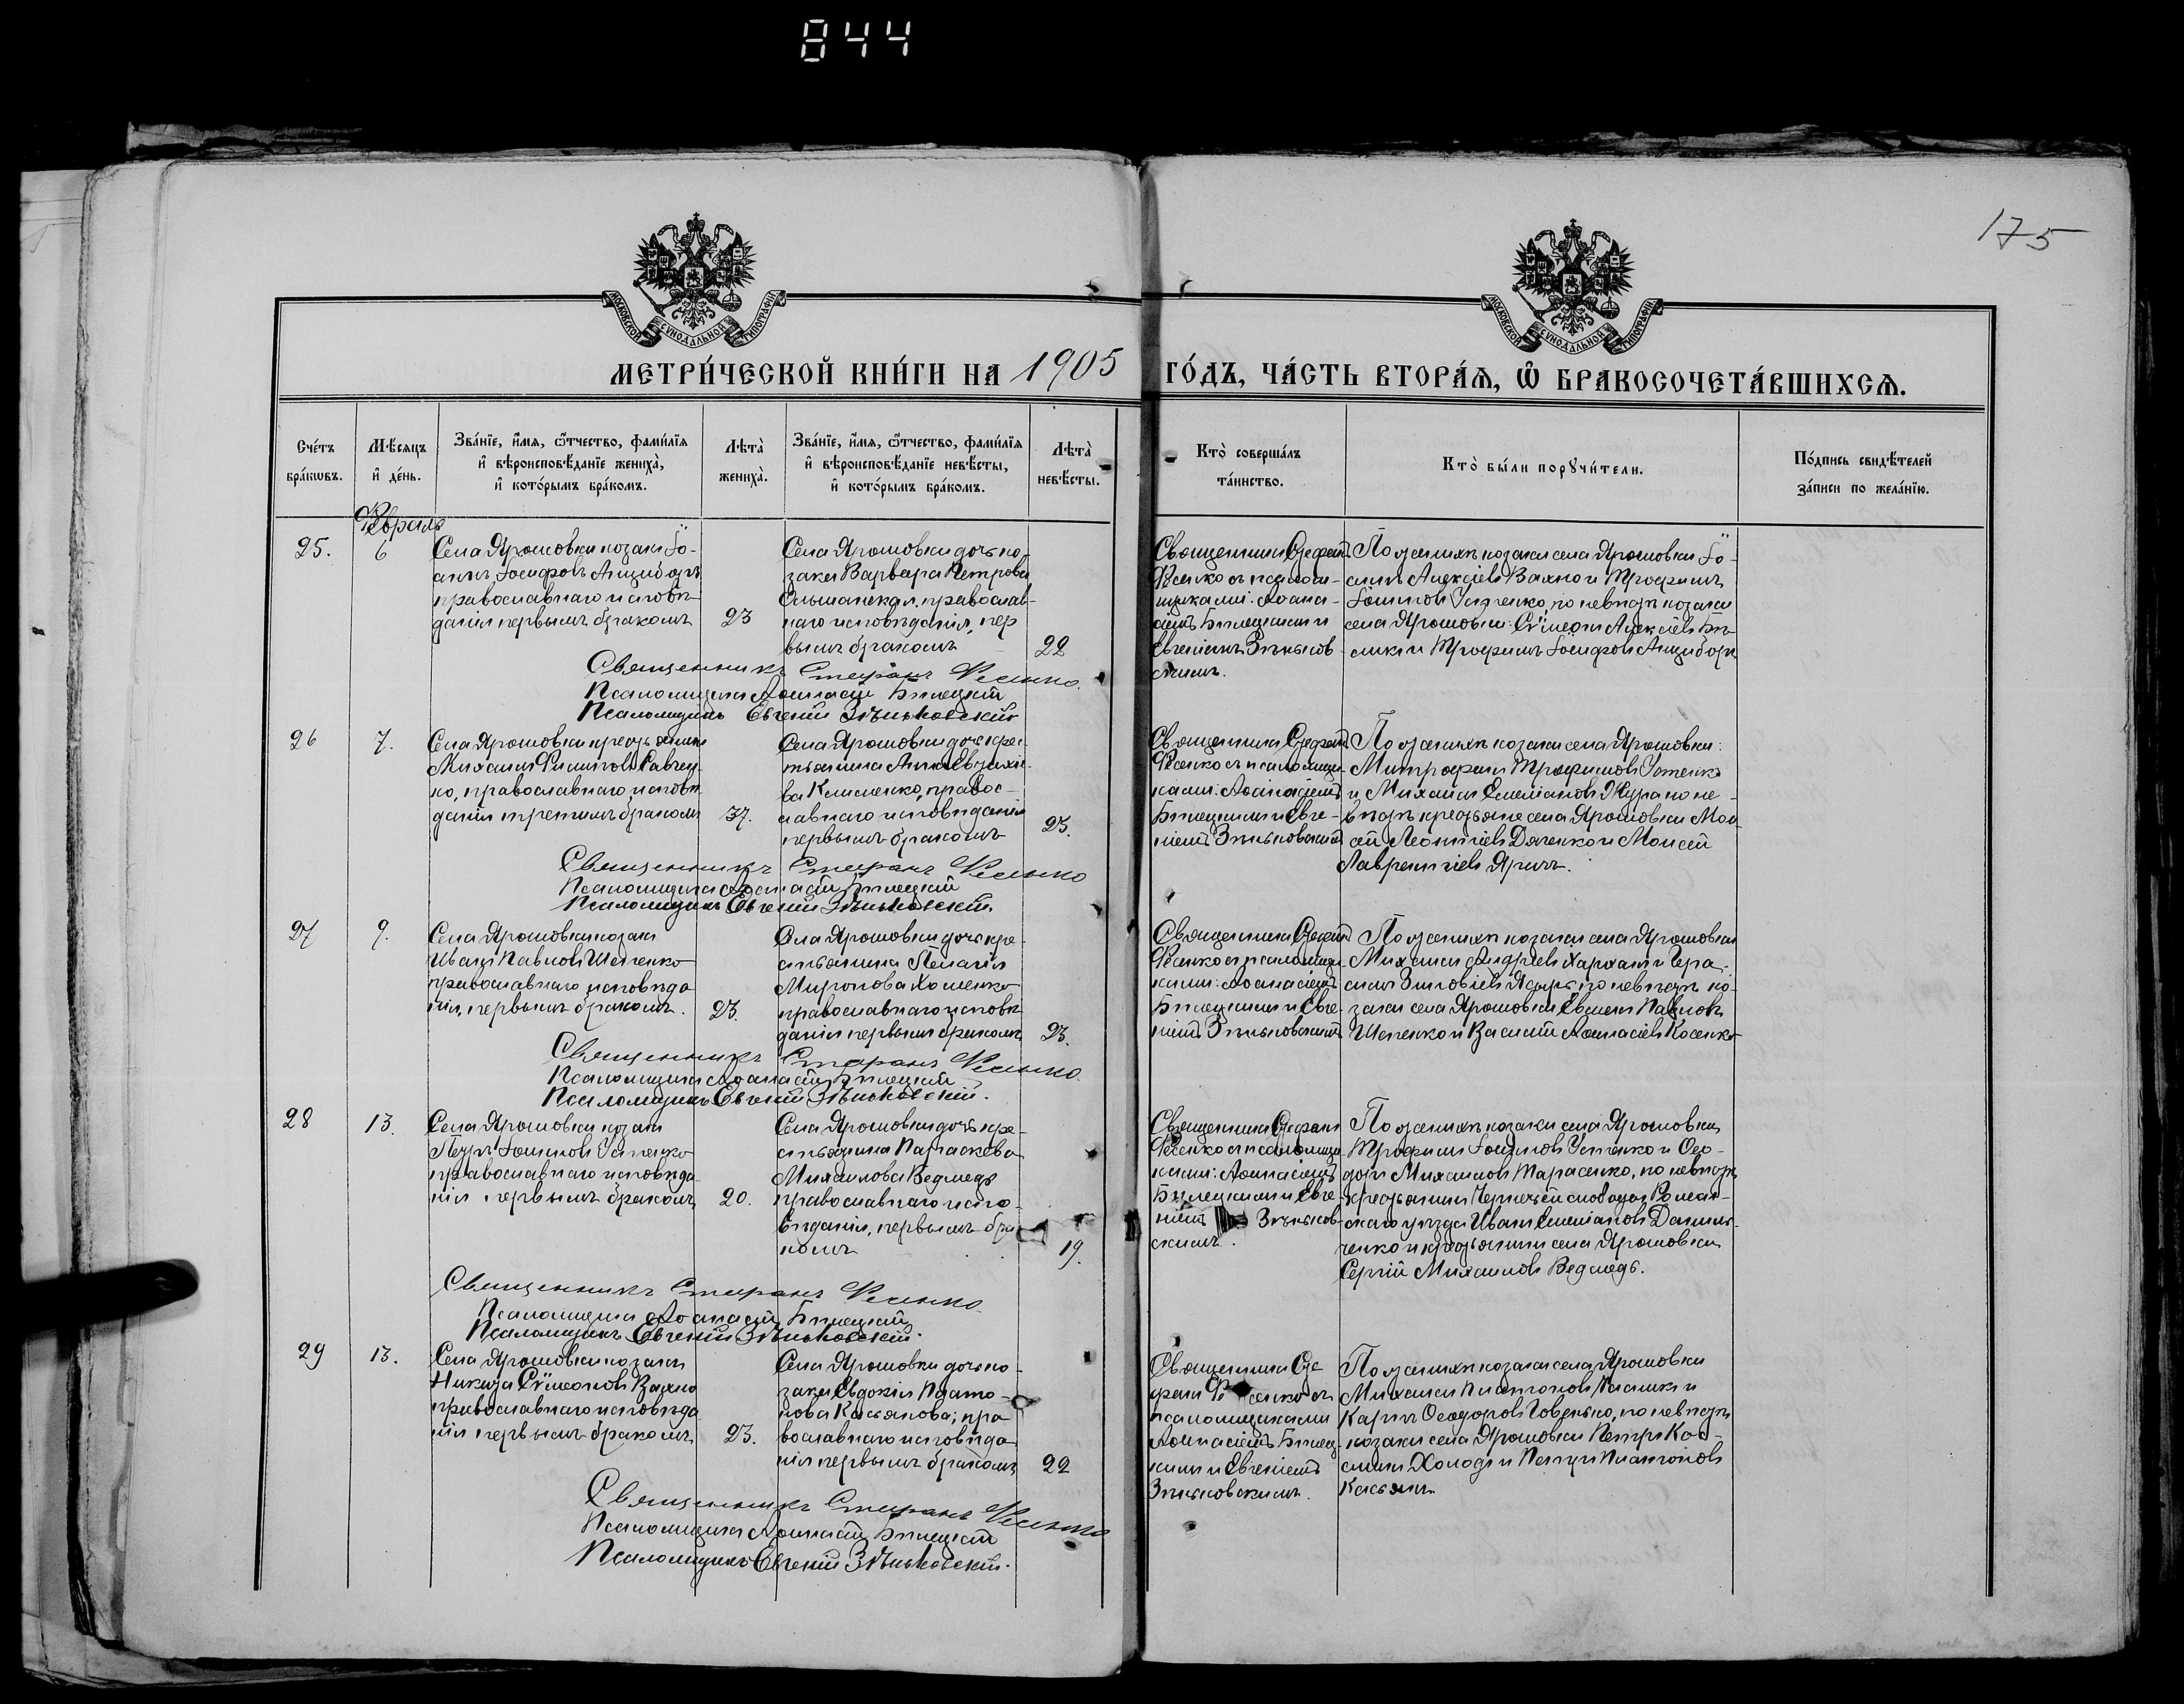 844
175
МОСКОВСКОЙ СѴНОДАЛЬНОЙ ТИПОГРАФІИ
МОСКОВСКОЙ СѴНОДАЛЬНОЙ ТИПОГРАФІИ
МЕТРИ́ЧЕСКОЙ КНИ́ГИ НА 1905 ГО́ДЪ, ЧА́СТЬ ВТОРА́Ѧ, Ѽ БРАКОСОЧЕТА́ВШИХСѦ.
Сче́тъ бра́кѡвъ.
Мѣ́сяцъ и҆ де́нь.
Зва́нїе, и҆́мѧ, ѻ҆́тчество, фами́лїѧ
и҆ вѣроисповѣ́данїе жениха̀,
и҆ кото́рымъ бра́комъ.
Лѣта̀
жениха̀.
Зва́нїе, и҆́мѧ, ѻ҆́тчество, фами́лїѧ
и҆ вѣроисповѣ́данїе невѣ́сты,
и҆ кото́рымъ бра́комъ.
Лѣта̀
невѣ́сты.
Кто̀ соверша́лъ
та́инство.
Кто̀ бы́ли порꙋчи́тели.
По́дпись свидѣ́телей
за́писи по жела́нїю.
Февраль
25.
6
Села Ярошовки козакъ Іо-
аннъ Іосифовъ Анциборъ
православнаго исповѣ-
данія первымъ бракомъ
23
Села Ярошовки дочь ко-
зака Варвара Петрова
Ольшанская, православ-
наго исповѣданія, пер
вымъ бракомъ
22
Священникъ Стефанъ
Фесенко съ псалом-
щиками: Аѳана-
сіемъ Билецкимъ и
Евгеніемъ Зѣньков-
скимъ.
По женихѣ козаки села Ярошовки Іо-
аннъ Алексіевъ Вахно и Трофимъ
Іоанновъ Устенко, по невѣстѣ козаки
села Ярошовки: Сѵмеонъ Алексіевъ Бѣ-
ликъ и Трофимъ Іосифовъ Анциборъ
Священникъ Стефанъ Фесенко.
Псаломщикъ Аѳанасій Билецкій
Псаломщикъ Евгеній Зѣньковскій
26
7.
Села Ярошовки крестьянинъ
Михаилъ Филиповъ Савчен-
ко, православнаго исповѣ-
данія третимъ бракомъ
37.
Села Ярошовки дочь крес-
тьянина Анна
ва Клименко, правос-
лавнаго исповѣданія
первымъ бракомъ
23.
Священникъ Стефанъ
Фесенко съ псаломщи-
ками: Аѳанасіемъ
Билецкимъ и Евге-
ніемъ Зѣньковскимъ
По женихѣ козаки села Ярошовки:
Митрофанъ Трофимовъ Устенко
и Михаилъ Емеліановъ Жура по не-
вѣстѣ крестьяне села Ярошовки Мои-
сей Леонтіевъ Дяченко и Моисей
Лаврентіевъ Яричъ.
Священникъ Стефанъ Фесенко
Псаломщикъ Аѳанасій Билецкій
Псаломщикъ Евгеній Зѣньковскій.
27
9.
Села Ярошовки козакъ
Иванъ Павловъ Шепенко
православнаго исповѣда
нія, первымъ бракомъ.
23.
Села Ярошовки дочь кре-
стьянина Пелагія
Миронова Хоменко
православнаго исповѣ
данія первымъ бракомъ
23.
Священникъ Стефанъ
Фесенко съ псаломщи-
ками: Аѳанасіемъ
Билецкимъ и Евге-
ніемъ Зѣньковскимъ
По женихѣ козаки села Ярошовки
Михаилъ Андріевъ Харханъ и Гера-
симъ Зиновіевъ по невѣстѣ ко-
заки села Ярошовки Евсевій Павловъ
Шепенко и Василій Аѳанасіевъ Косенко
Священникъ Стефанъ Фесенко.
Псаломщикъ Аѳанасій Билецкій
Псаломщикъ Евгеній Зѣньковскій.
28
13.
Села Ярошовки козакъ
Петръ Іоанновъ Устенко
православнаго исповѣда
нія первымъ бракомъ
20.
Села Ярошовки дочь кре-
стьянина Параскева
Михаилова Ведмедь
православнаго испо-
вѣданія, первымъ бра
комъ
19.
Священникъ Стефанъ
Фесенко съ псаломщи-
ками: Аѳанасіемъ
Билецкимъ и Евге-
ніемъ Зѣньков-
скимъ.
По женихѣ козаки села Ярошовки
Трофимъ Іоанновъ Устенко и Ѳео-
доръ Михаиловъ Тарасенко, по невѣстѣ
крестьянинъ слободы Ромен-
скаго уѣзда Иванъ Емеліановъ Данил-
ченко и крестьянинъ села Ярошовки
Сергій Михаиловъ Ведмедь.
Священникъ Стефанъ Фесенко
Псаломщикъ Аѳанасій Билецкій
Псаломщикъ Евгеній Зѣньковскій.
29
13.
Села Ярошовки козакъ
Никита Сѵмеоновъ Вахно
православнаго исповѣда
нія первымъ бракомъ
23.
Села Ярошовки дочь ко-
зака Евдокія Плато-
нова Касьянова; пра
вославнаго исповѣда
нія первымъ бракомъ
22
Священникъ Сте
фанъ Фесенко съ
псаломщиками
Аѳанасіемъ Билец-
кимъ и Евгеніемъ
Зѣньковскимъ.
По женихѣ козаки села Ярошовки
Михаилъ Платоновъ и
Карпъ Ѳеодоровъ по невѣстѣ
козаки села Ярошовки Петръ Кос-
минъ Холодъ и Петръ Платоновъ
Касьянъ
Священникъ Стефанъ Фесенко
Псаломщикъ Аѳанасій Билецкій
Псаломщикъ Евгеній Зѣньковскій.